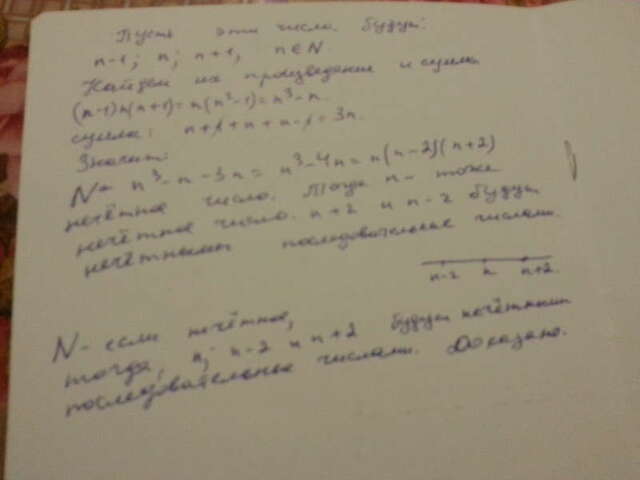 Пусть эти числа будут:
n-1; n; n+1, n∈N.
Найдем их произведение и сумма
(n-1)n(n+1)=n(n²-1)=n³-n.
сумма: n+1+n+n-1=3n.
Значит:
N= n³-n-3n = n³-4n=n(n-2)(n+2)
нечётное число. Тогда n- тоже
нечётное число. n+2 и n-2 будут
нечётными последовательные числами.
n-2 n n+2.
N- если нечётное,
тогда, n; n-2 и n+2 будут нечётными
последовательные числами. Доказано.